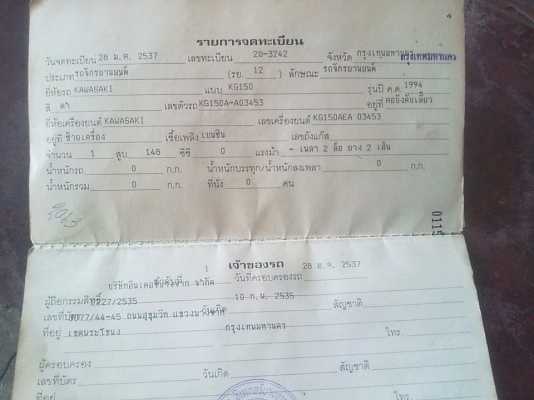 รายการจดทะเบียน
วันจดทะเบียน 28 ม.ค. 2537 เลขทะเบียน 2ษ-3242 จังหวัด กรุงเทพมหานคร กรุงเทพมหานคร
ประเภท รถจักรยานยนต์ (รย. 12 ) ลักษณะ รถจักรยานยนต์
ยี่ห้อรถ KAWASAKI แบบ KG150 รุ่นปี ค.ศ. 1994
สี ดำ เลขตัวรถ KG150A-A03453 อยู่ที่ คอบังคับเลี้ยว
ยี่ห้อเครื่องยนต์ KAWASAKI เลขเครื่องยนต์ KG150AEA 03453
อยู่ที่ ซ้ายเครื่อง เชื้อเพลิง เบนซิน เลขถังแก๊ส
จำนวน 1 สูบ 148 ซีซี 0 แรงม้า - เพลา 2 ล้อ ยาง 2 เส้น
น้ำหนักรถ 0 ก.ก. น้ำหนักบรรทุก/น้ำหนักลงเพลา 0 ก.ก.
น้ำหนักรวม 0 ก.ก. ที่นั่ง 0 คน
0115
เจ้าของรถ
1 วันที่ครอบครองรถ 28 ม.ค. 2537
ผู้ถือกรรมสิทธิ์
เลขที่บัตร 727/2535 วันเกิด 10 ก.พ. 2535 สัญชาติ
ที่อยู่ 77/44-45 ถนนสุขุมวิท แขวงบางจาก
เขตพระโขนง กรุงเทพมหานคร โทร.
ผู้ครอบครอง
เลขที่บัตร วันเกิด สัญชาติ
ที่อยู่ โทร.